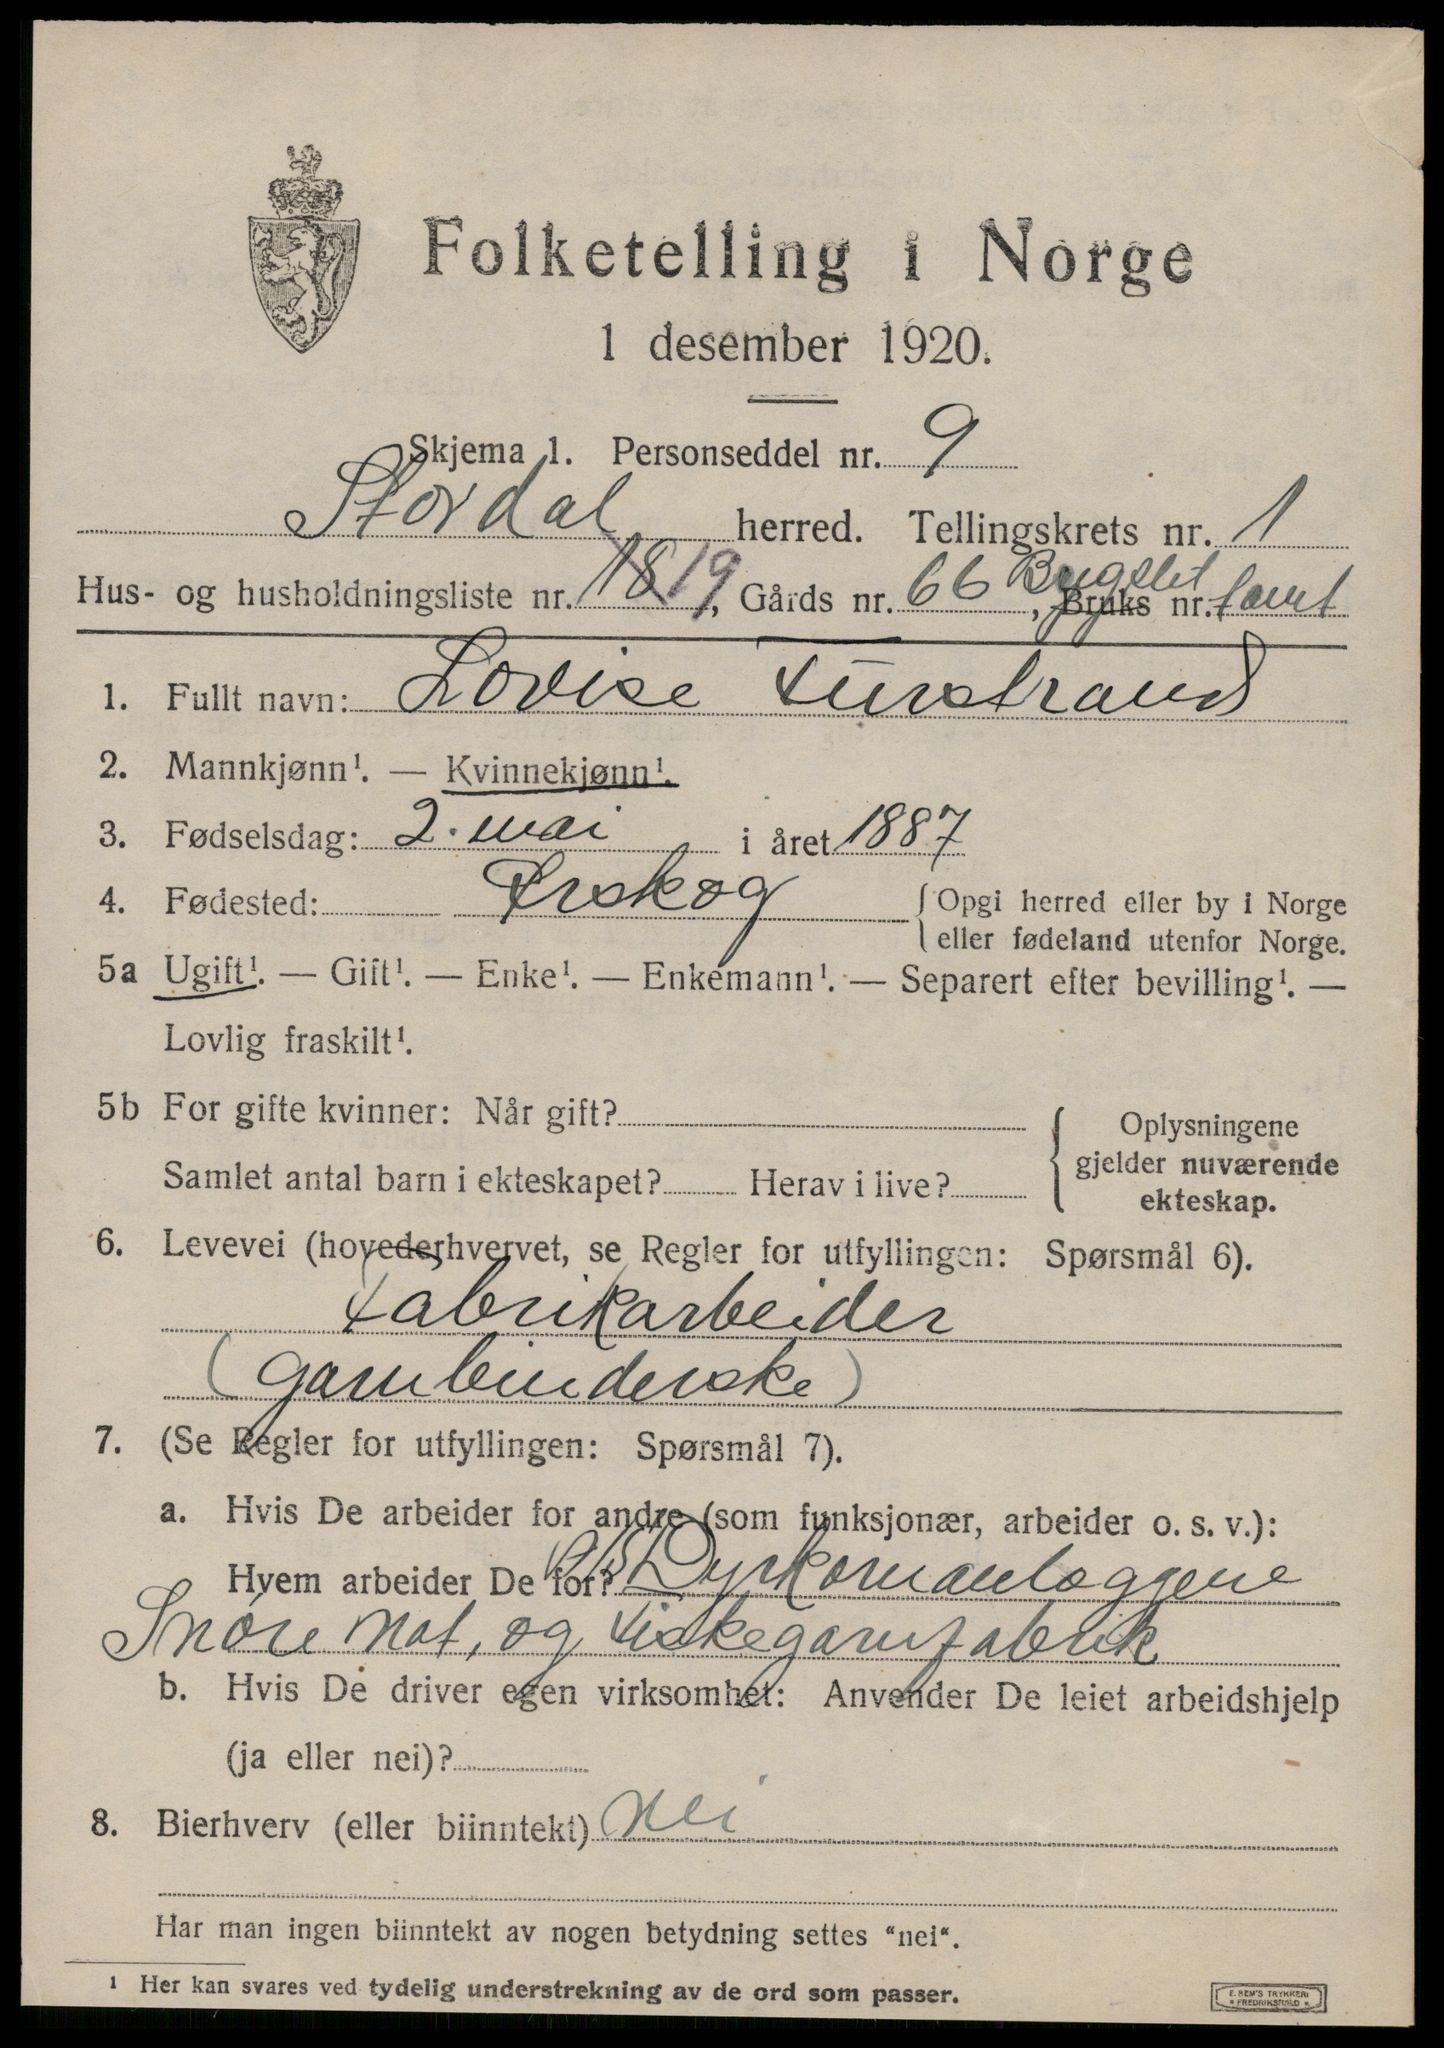 Folketelling i Norge
1 desember 1920.
Skjema 1. Personseddel nr. 9
Stordal herred. Tellingskrets nr. 1
Hus- og husholdningsliste nr. 18 19, Gårds nr. 66, Bruks nr. Bygslet tomt
1. Fullt navn: Lovise Furstrand
2. Mannkjønn¹. — Kvinnekjønn¹.
3. Fødselsdag: 2. mai i året 1887
4. Fødested: Ørskog { Opgi herred eller by i Norge
eller fødeland utenfor Norge.
5a Ugift¹. — Gift¹. — Enke¹. — Enkemann¹. — Separert efter bevilling¹. —
Lovlig fraskilt¹.
5b For gifte kvinner: Når gift?
Samlet antal barn i ekteskapet? Herav i live?
{ Oplysningene
gjelder nuværende
ekteskap.
6. Levevei (hovederhvervet, se Regler for utfyllingen: Spørsmål 6).
Fabrikarbeider
(garnbinderske)
7. (Se Regler for utfyllingen: Spørsmål 7).
a. Hvis De arbeider for andre (som funksjonær, arbeider o. s. v.):
Hvem arbeider De for? A/S Dyrkornanlæggene
Snøre Not, og Fiskegarnfabrik
b. Hvis De driver egen virksomhet: Anvender De leiet arbeidshjelp
(ja eller nei)?
8. Bierhverv (eller biinntekt) Nei
Har man ingen biinntekt av nogen betydning settes “nei“.
¹ Her kan svares ved tydelig understrekning av de ord som passer.
E. SEM'S TRYKKERI
* FREDRIKSHALD *